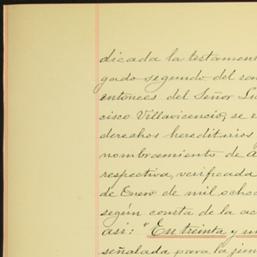 dicada la testamen
gado segundo del
entonces del Señor
cisco Villavicencio, se
derechos hereditarios
nombramiento de
respectiva, verificada
de Enero de mil ocho
según consta de la
así: "En treinta y
señalada para la